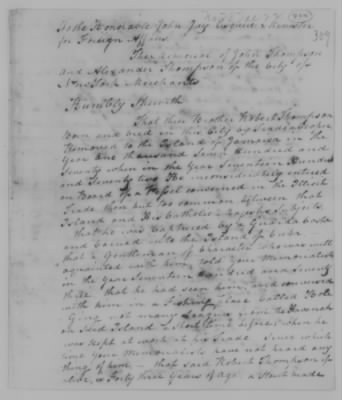 To the Honorable John Jay Esquire Minister
for Foreign Affairs
The Memorial of John Thompson
and Alexander Thompson of the City of
New York Merchants
Humbly Sheweth
That their Brother Robert Thompson
Born and bred in this City by Trade a
Removed to the Island of Jamaica in the
Year One thousand Seven Hundred and
Seventy when in the Year Seventeen Hundred
and Seventy two He inconsiderately entered
on Board of a Vessel concerned in the Illicit
Trade then but too common between that
Island and His Catholic Majestys Subjects
that he was Captured by a Guarda Costa
and Carried into the Island of Cuba
that a Gentleman of Character who was well
aquainted with him told your Memorialists
in the year Seventeen Hundred and Seventy
three that he had seen him and conversed
with him in a Fishing place Called Hole
not many Leagues from the Havanah
on said Island a Short time before when he
was kept at work at his Trade Since which
time your Memorialists have not heard any
thing of him — that said Robert Thompson if
alive, is Forty three Years of Age a Stout made
309